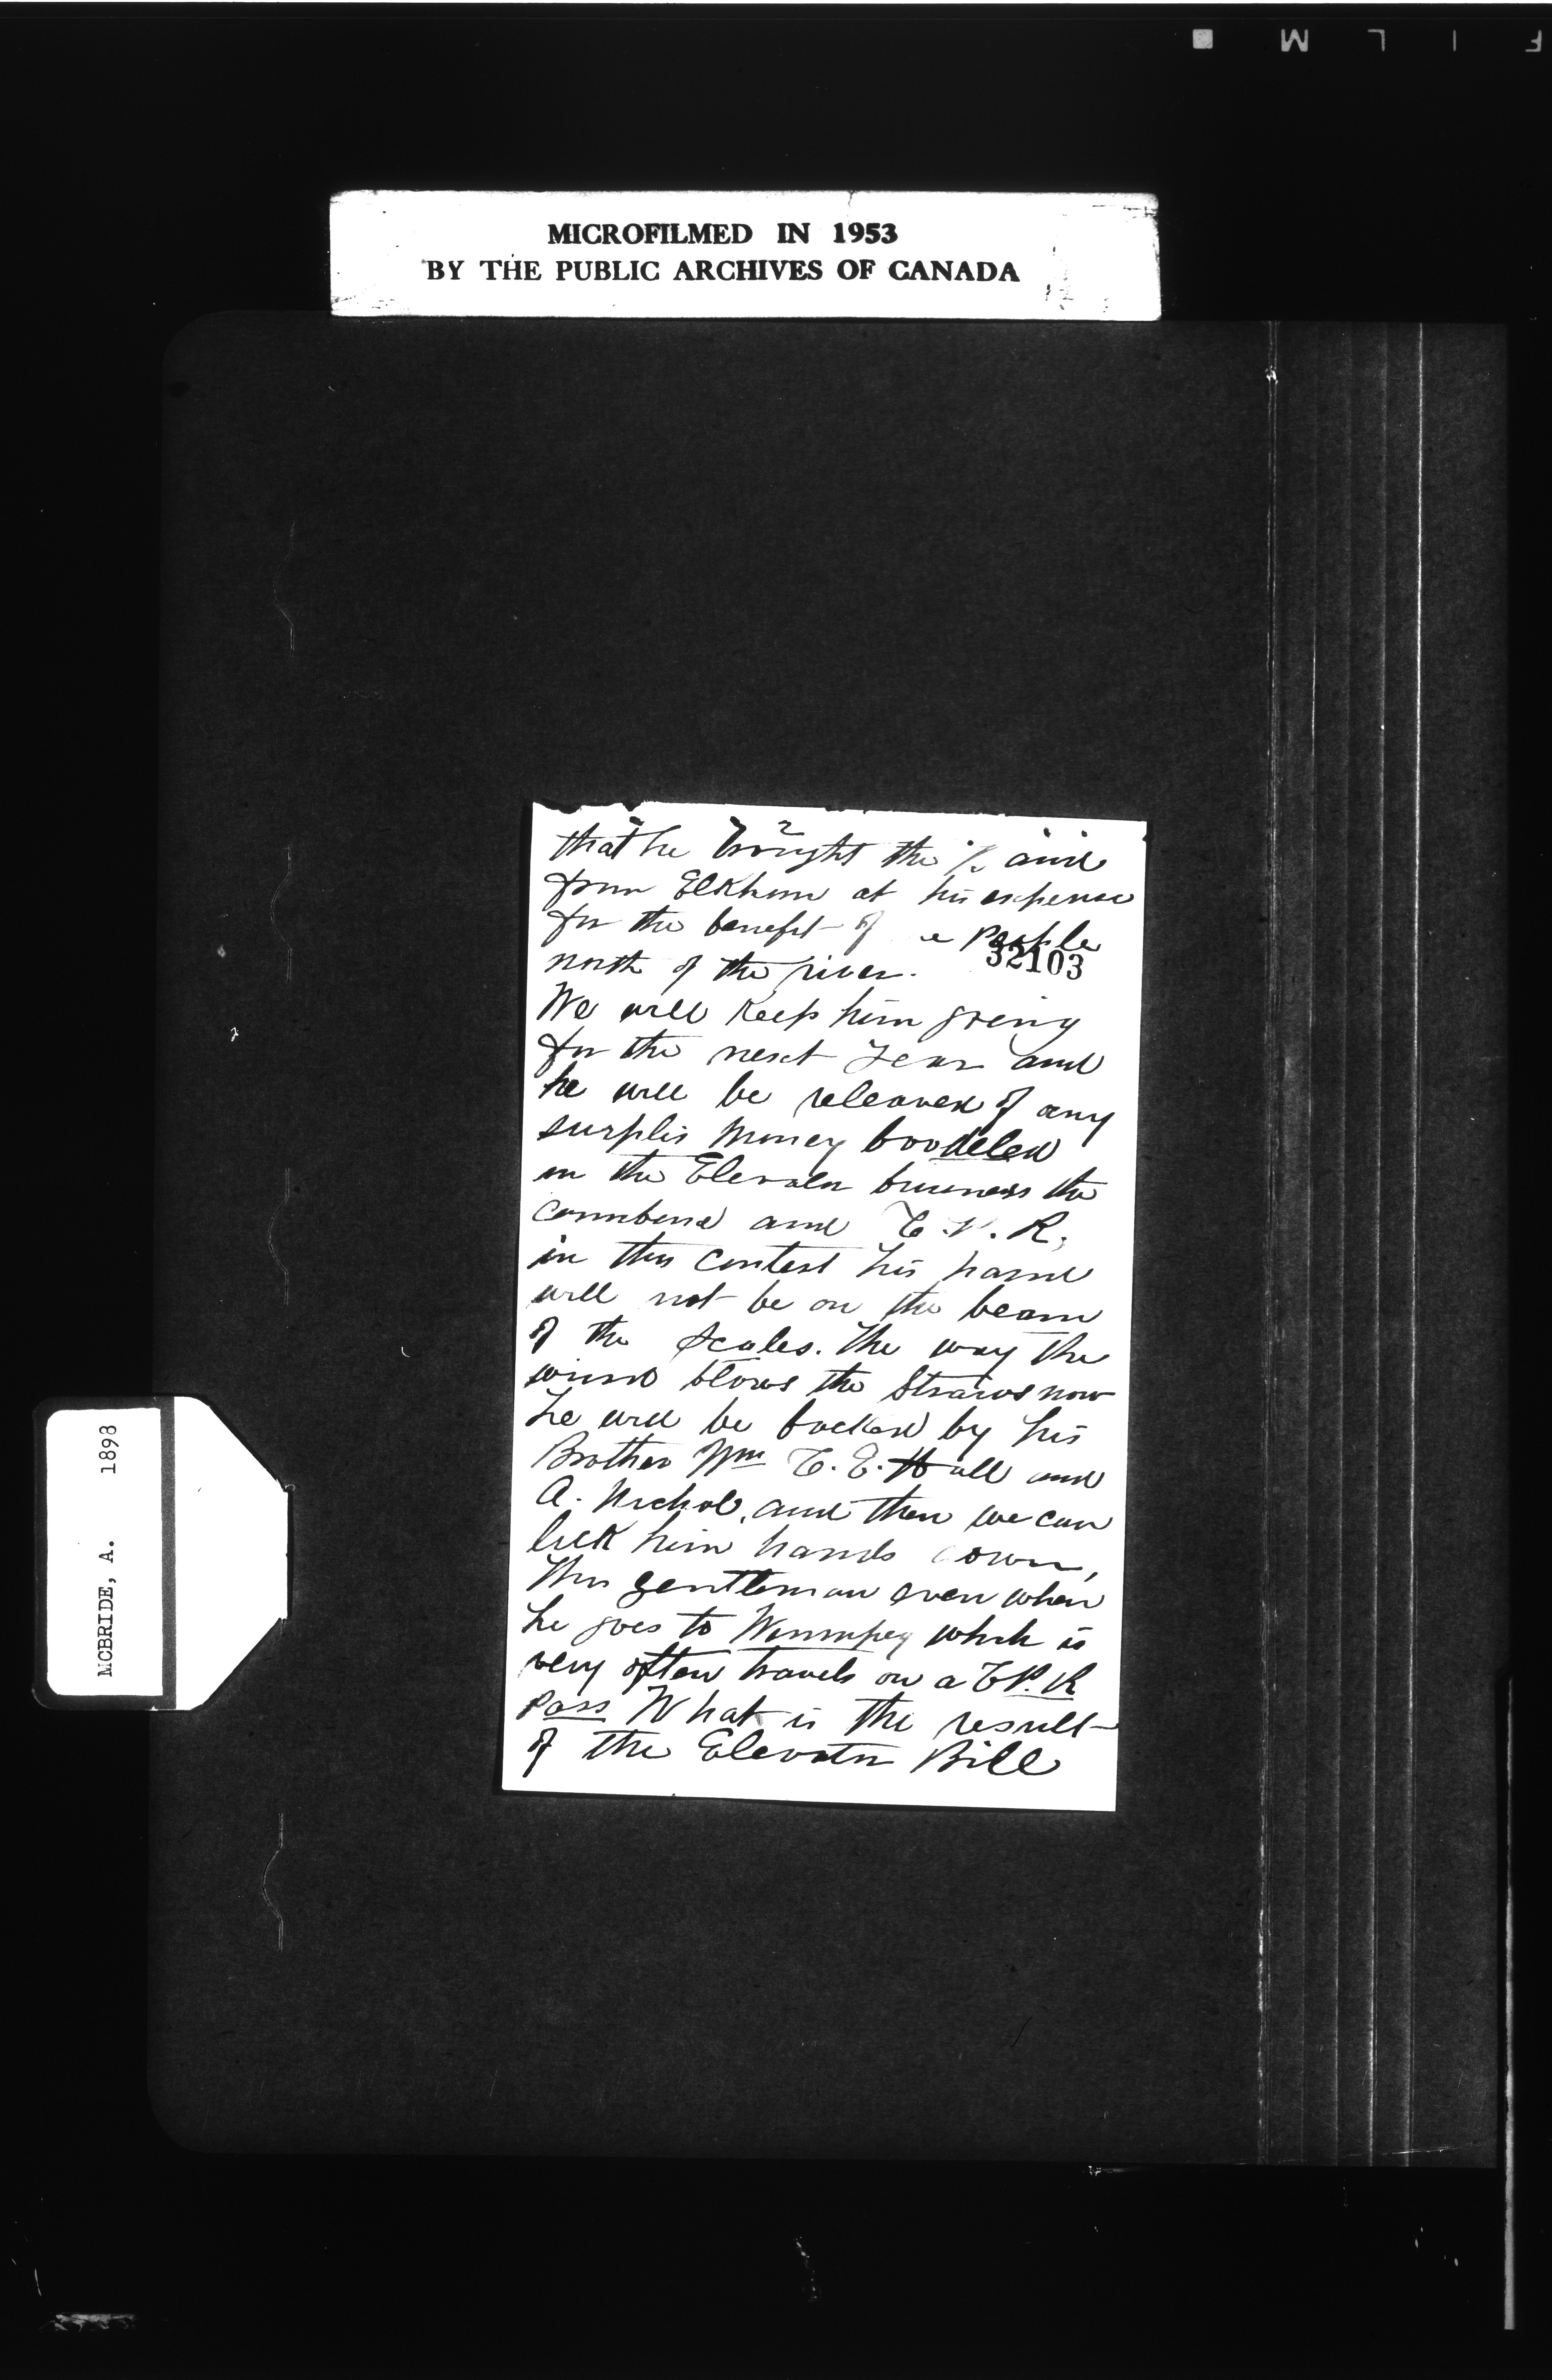 F I L M
MICROFILMED IN 1953
BY THE PUBLIC ARCHIVES OF CANADA
2
that he brought the
from Elkhorn at his expense
for the benefit of e People
32103
north of the river.
We will keep him going
for the next year and
he will be releaved of any
surplis money boodeled
in the Elevator business the
combine and C.P.R.
in this contest his hand
will not be on the beam
of the scales. The way the
wind blows the Straws now
he will be backed by his
Brother Wm C.E. Hall and
A. Nichol, and then we can
lick him hands down,
This gentleman even when
he goes to Winnipeg which is
very often travels on a C P. R
Pass What is the result
of the Elevator Bill
MCBRIDE, A. 1898